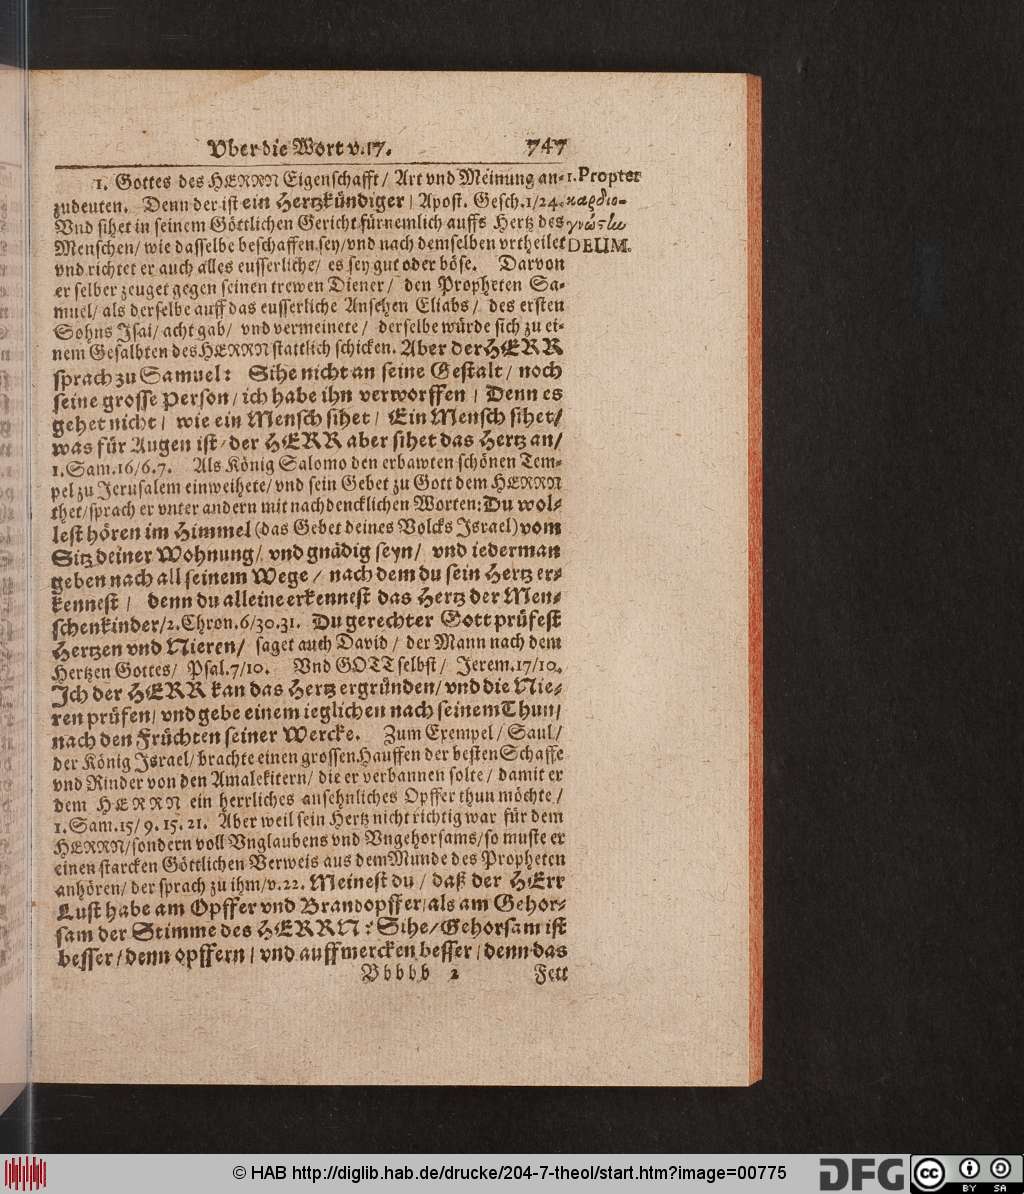 Vber die Wort v.17. 747
1. Gottes des HERRN Eigenschafft/ Art vnd Meinung an-
zudeuten. Denn der ist ein Hertzkündiger/ Apost. Gesch.1/24.
Vnd sihet in seinem Göttlichen Gericht fürnemlich auffs Hertz des
Menschen/ wie dasselbe beschaffen sey/ vnd nach demselben vrtheilet
vnd richtet er auch alles eusserliche/ es sey gut oder böse. Darvon
er selber zeuget gegen seinen trewen Diener/ den Propheten Sa-
muel/ als derselbe auff das eusserliche Ansehen Eliabs/ des ersten
Sohns Isai/ acht gab/ vnd vermeinete/ derselbe würde sich zu ei-
nem Gesalbten des HERRN stattlich schicken. Aber der HERR
sprach zu Samuel: Sihe nicht an seine Gestalt/ noch
seine grosse Person/ ich habe ihn verworffen/ Denn es
gehet nicht/ wie ein Mensch sihet/ Ein Mensch sihet/
was für Augen ist/ der HERR aber sihet das Hertz an/
1. Sam.16/6.7. Als König Salomo den erbawten schönen Tem-
pel zu Jerusalem einweihete/ vnd sein Gebet zu Gott dem HERRN
thet/ sprach er vnter andern mit nachdencklichen Worten: Du wol-
lest hören im Himmel (das Gebet deines Volcks Israel) vom
Sitz deiner Wohnung/ vnd gnädig seyn/ vnd iederman
geben nach all seinem Wege/ nach dem du sein Hertz er-
kennest/ denn du alleine erkennest das Hertz der Men-
schenkinder/ 2. Chron.6/30.31. Du gerechter Gott prüfest
Hertzen vnd Nieren/ saget auch David/ der Mann nach dem
Hertzen Gottes/ Psal.7/10. Vnd GOTT selbst/ Jerem.17/10.
Ich der HERR kan das Hertz ergründen/ vnd die Nie-
ren prüfen/ vnd gebe einem ieglichen nach seinem Thun/
nach den Früchten seiner Wercke. Zum Exempel/ Saul/
der König Israel/ brachte einen grossen Hauffen der besten Schaffe
vnd Rinder von den Amalekitern/ die er verbannen solte/ damit er
dem HERRN ein herrliches ansehnliches Opffer thun möchte/
1. Sam.15/ 9. 15. 21. Aber weil sein Hertz nicht richtig war für dem
HERRN/ sondern voll Vnglaubens vnd Vngehorsams/ so muste er
einen starcken Göttlichen Verweis aus dem Munde des Propheten
anhören/ der sprach zu ihm/ v.22. Meinest du/ daß der HErr
Lust habe am Opffer vnd Brandopffer/ als am Gehor-
sam der Stimme des HERRN? Sihe/ Gehorsam ist
besser/ denn opffern/ vnd auffmercken besser/ denn das
Bbbbb 2 Fett
1. Propter
καρδιο-
γνώστω
DEUM.
© HAB http://diglib.hab.de/drucke/204-7-theol/start.htm?image=00775
DFG
cc
BY SA